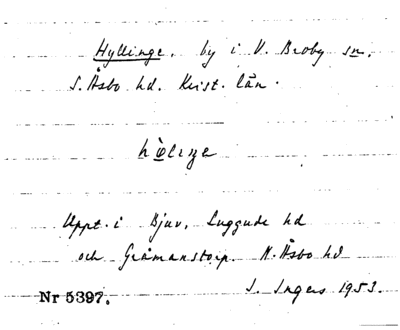 Hyllinge, by i V. Broby sn.
S. Åsbo hd. Krist. län.
Uppt. i Bjuv, Luggude hd
och Gråmanstorp. N. Åsbo hd
I. Ingers 1953.
Nr 5397.